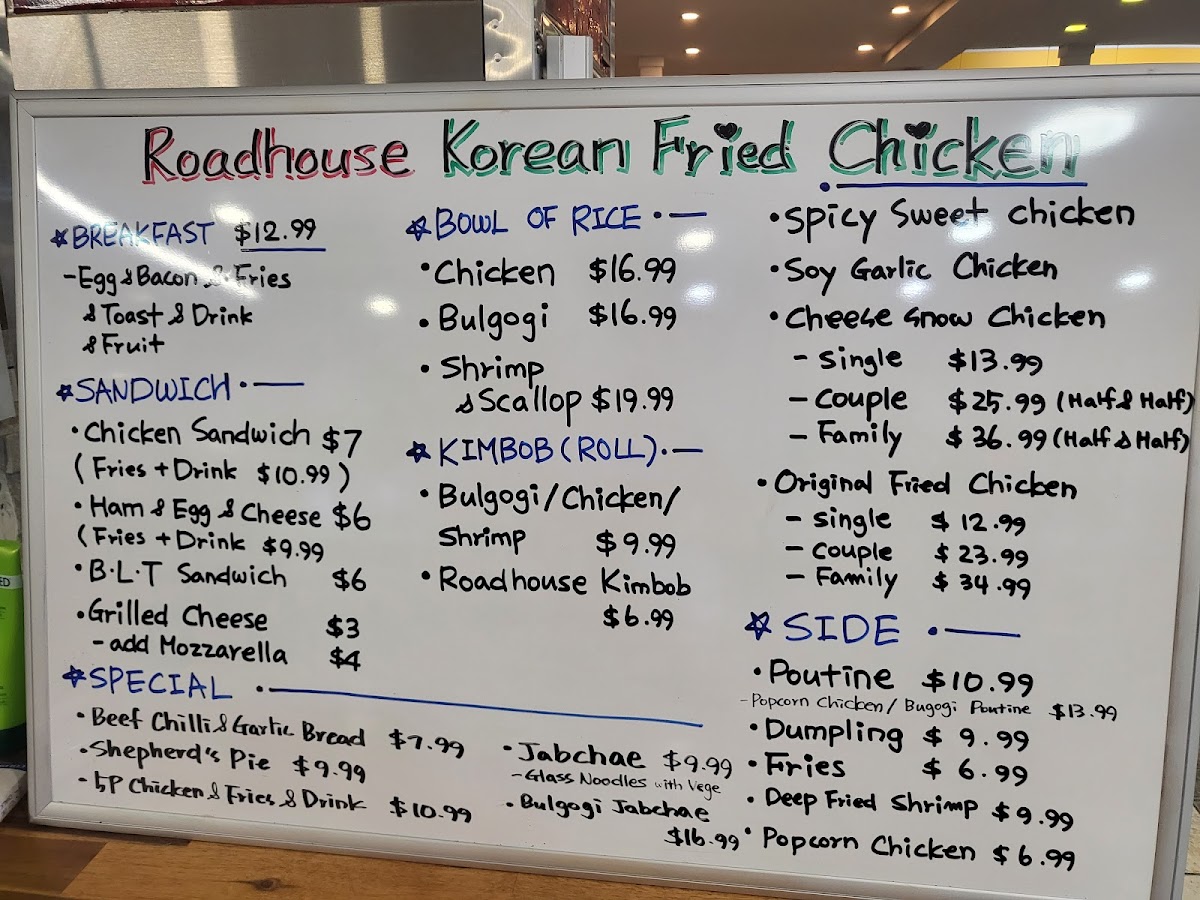 Roadhouse Korean Fried Chicken
☆BREAKFAST $12.99
-Egg & Bacon & Fries
& Toast & Drink
& Fruit
☆SANDWICH ·—
·Chicken Sandwich $7
(Fries + Drink $10.99)
·Ham & Egg & Cheese $6
(Fries + Drink $9.99
·B·L·T Sandwich $6
·Grilled Cheese $3
- add Mozzarella $4
☆BOWL OF RICE ·—
·Chicken $16.99
·Bulgogi $16.99
·Shrimp
& Scallop $19.99
☆KIMBOB (ROLL)·—
·Bulgogi/Chicken/
Shrimp $9.99
·Roadhouse Kimbob
$6.99
·Spicy Sweet chicken
·Soy Garlic Chicken
·Cheese Snow Chicken
- Single $13.99
- Couple $25.99 (Half & Half)
- Family $36.99 (Half & Half)
·Original Fried Chicken
- Single $12.99
- Couple $23.99
- Family $34.99
☆SIDE ·—
·Poutine $10.99
-Popcorn Chicken/Bugogi Poutine $13.99
·Dumpling $9.99
·Fries $6.99
·Deep Fried Shrimp $9.99
·Popcorn Chicken $6.99
☆SPECIAL ·—
·Beef Chilli & Garlic Bread $7.99
·Shepherd's Pie $9.99
·5P Chicken & Fries & Drink $10.99
·Jabchae $9.99
-Glass Noodles with Vege
·Bulgogi Jabchae
$16.99